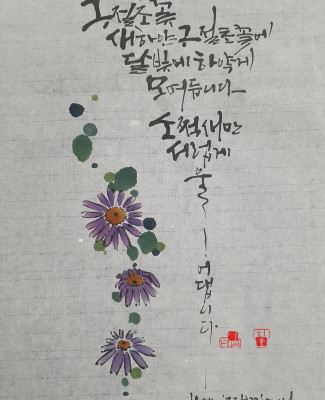 구절초꽃
새하얀 구절초꽃에
달빛만 하얗게
모여듭니다
소쩍새만
서럽게
울
어댑니다